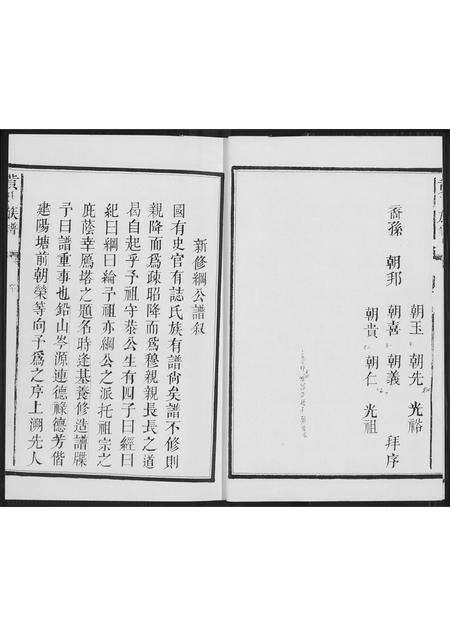 朝玉 朝先 光裕
裔孫 朝邦 朝喜 朝義 拜序
朝貴 朝仁 光祖
新修綱公譜叙
國有史官有誌氏族有譜尙矣譜不修則
親降而爲疎昭降而爲穆親親長長之道
曷自起乎予祖守恭公生有四子曰經曰
紀曰綱曰綸予祖亦綱公之派托祖宗之
庇蔭幸鴈塔之題名時逢基養修造譜牒
予曰譜重事也鉛山岑源連德祿德芳偕
建陽塘前朝榮等向予爲之序上溯先人
黃氏族譜